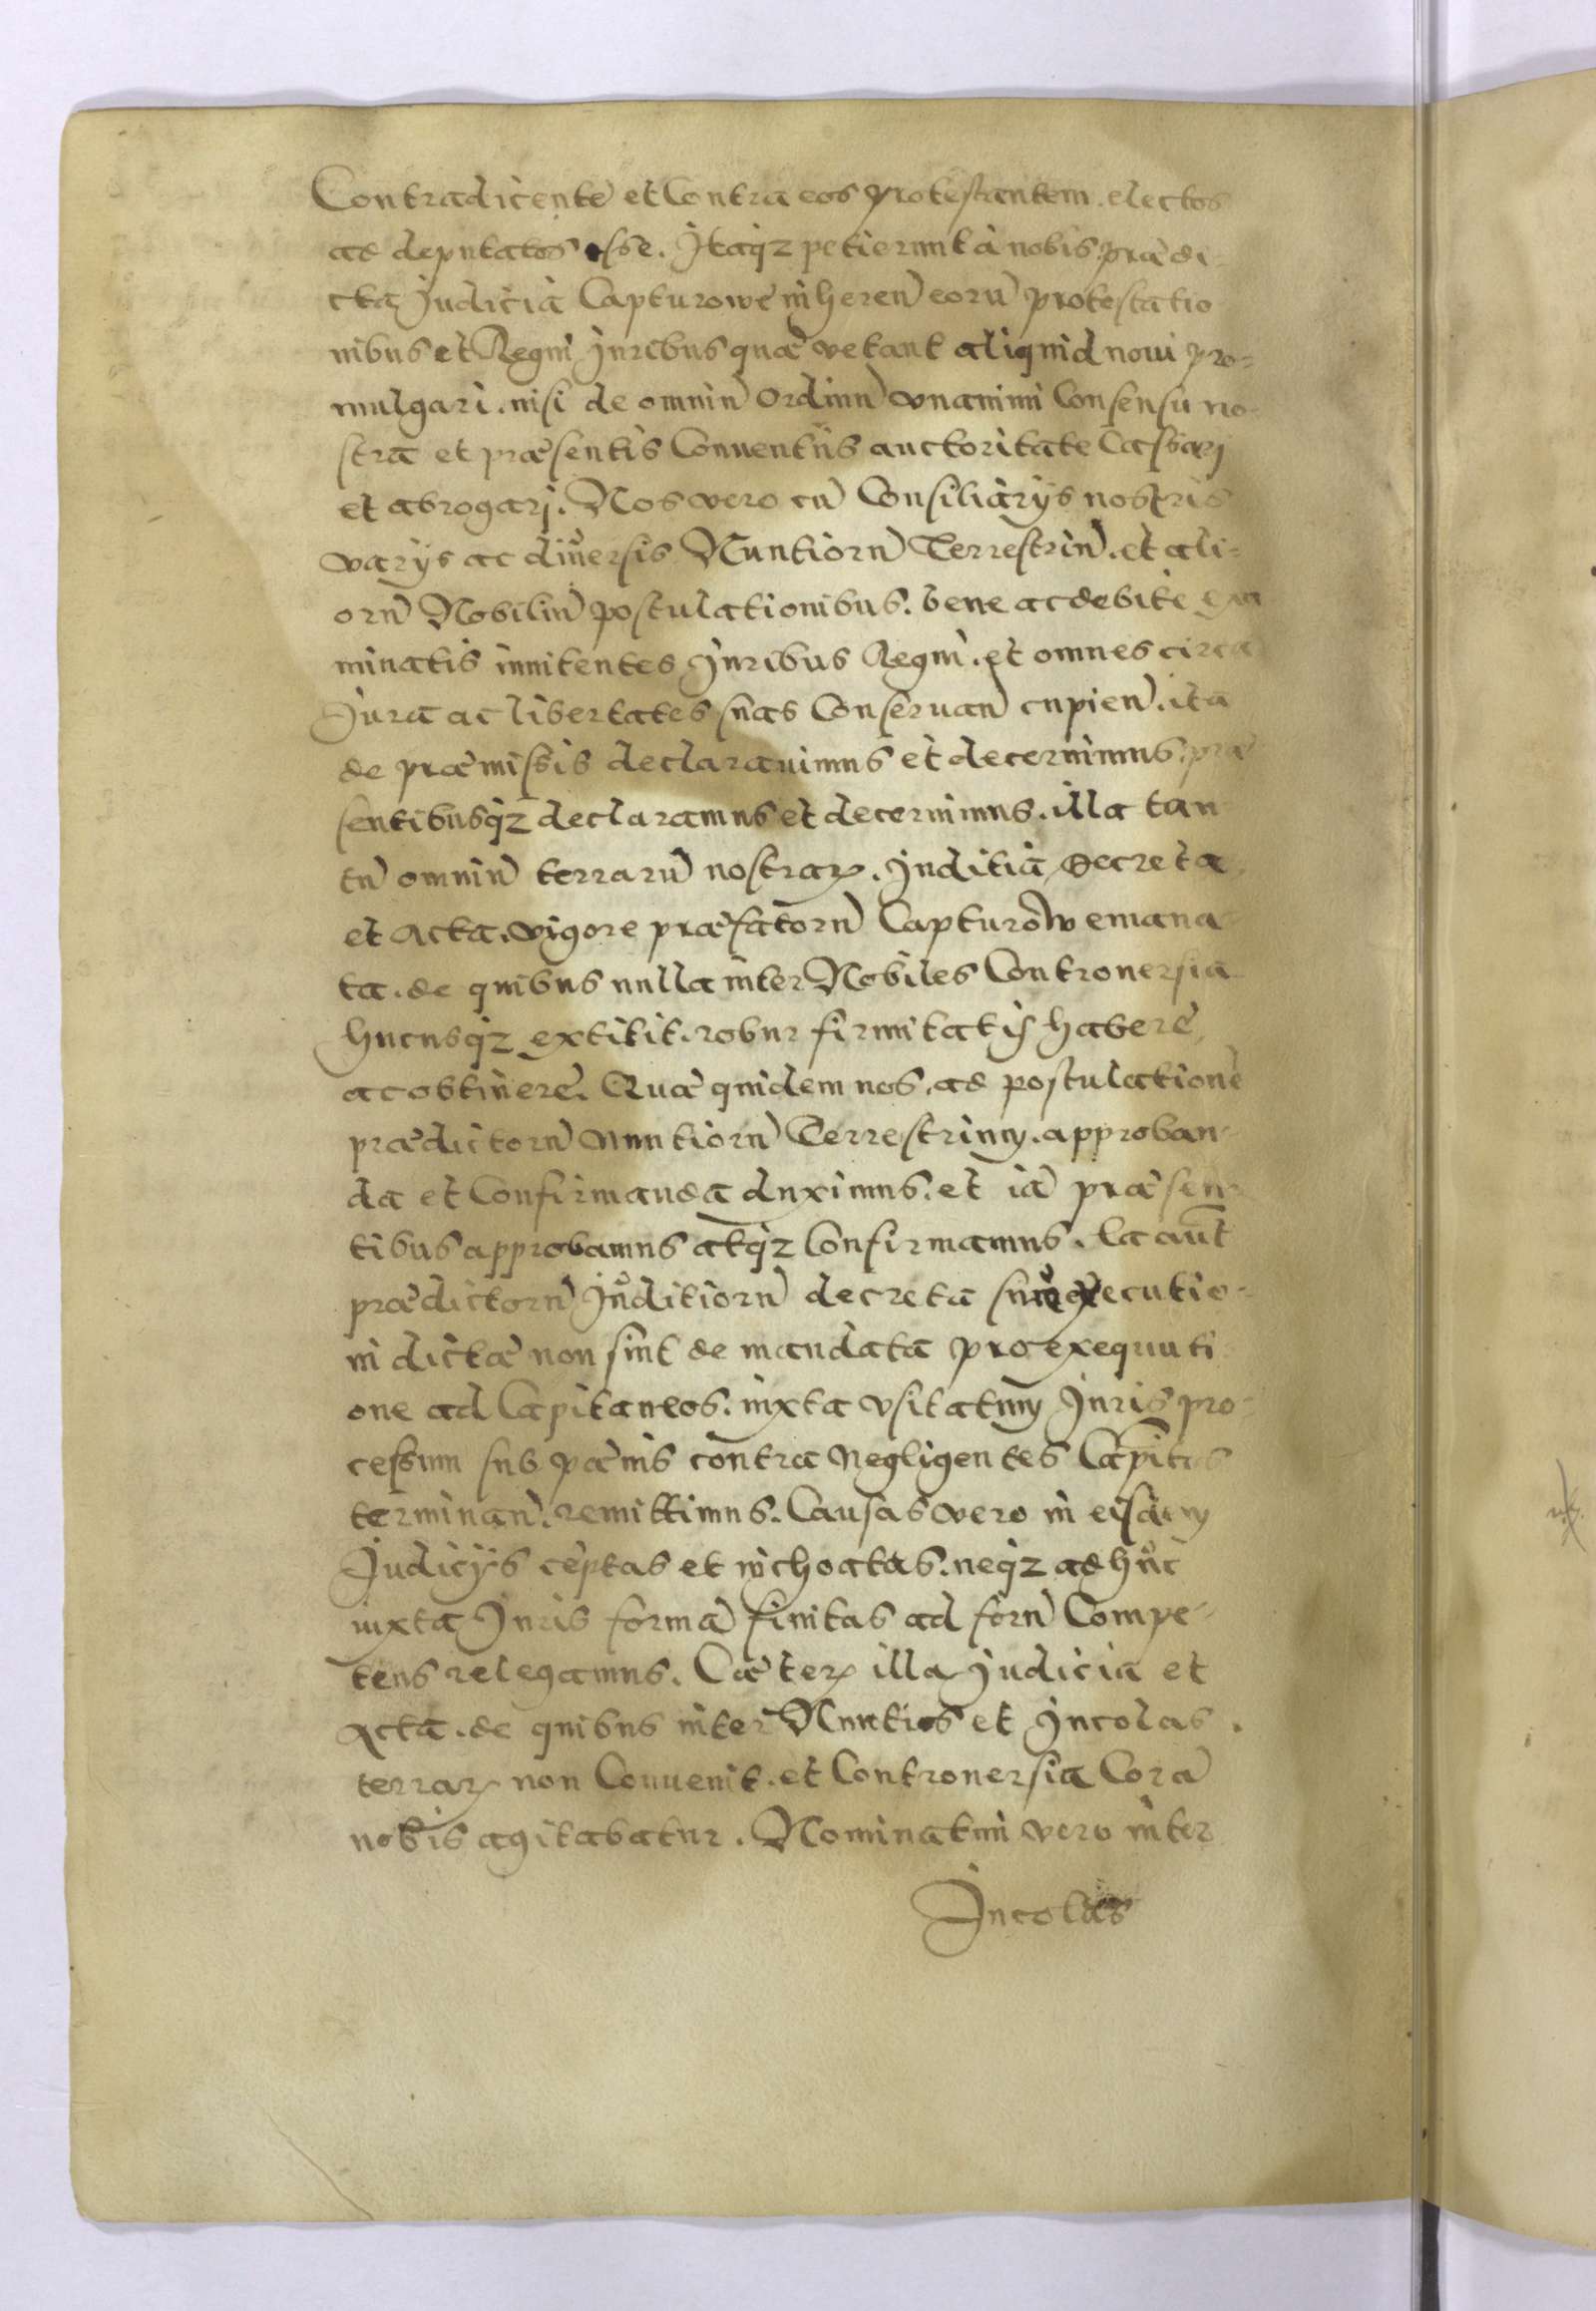 Contradicente et Contra eos protestantem. electos
ac deputatos esse. Itaqz petierunt à nobis. prædi-
cta Judicia Capturowe inheren eoru protestatio
nibus et Regni Juribus quæ vetant aliquid noui pro-
mulgari. nisi de omniu Ordinu vnanimi Consensu no-
stra et præsentis Conuentus auctoritate Cassarj
et abrogarj. Nos vero cu Consiliarijs nostris
varijs ac diuersis Nuntioru Terrestriu. et ali-
oru Nobiliu postulationibus. bene ac debite exa
minatis innitentes Juribus Regni. et omnes circa
Jura ac libertates suas Conseruan cupien. ita
de præmissis declarauimus et decernimus. præ
sentibusqz declaramus et decernimus. illa tan
tu omniu terraru nostrarꝝ. Juditia, Decreta,
et Acta. vigore præfatoru Capturow emana-
ta. de quibus nulla inter Nobiles Controuersia
hucusqz extitit. robur firmitatis habere,
ac obtinere. Quæ quidem nos. ad postulatione
prædictoru Nuntioru Terrestrium. approban-
da et Confirmanda duximus. et ia præsen-
tibus approbamus atqz Confirmamus. Ea aut
prædictoru Juditioru decreta suæ executio-
ni dictæ non sint de mandata pro exequuti
one ad Capitaneos. iuxta vsitatum Juris pro-
cessum sub pænis contra Negligentes Capitos
terminan. remittimus. Causas vero in eisdem
Judicijs ceptas et inchoatas. neqz adhuc
iuxta Juris forma finitas ad foru Compe-
tens relegamus. Cæterꝝ illa Judicia et
Acta. de quibus inter Nuntios et Incolas.
terrarꝝ non Conuenit. et Controuersia Cora
nobis agitabatur. Nominatim vero inter
Incolas